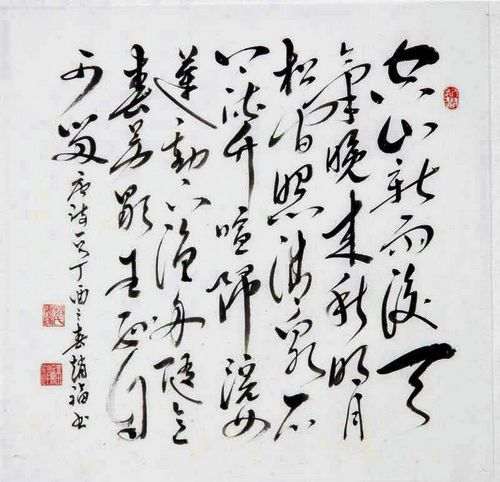 空山新雨後天
氣晚來秋明月
松間照清泉石
上流竹喧歸浣女
蓮動下漁舟隨意
春芳歇王孫自
可留
唐詩一首丁酉之春趙福書